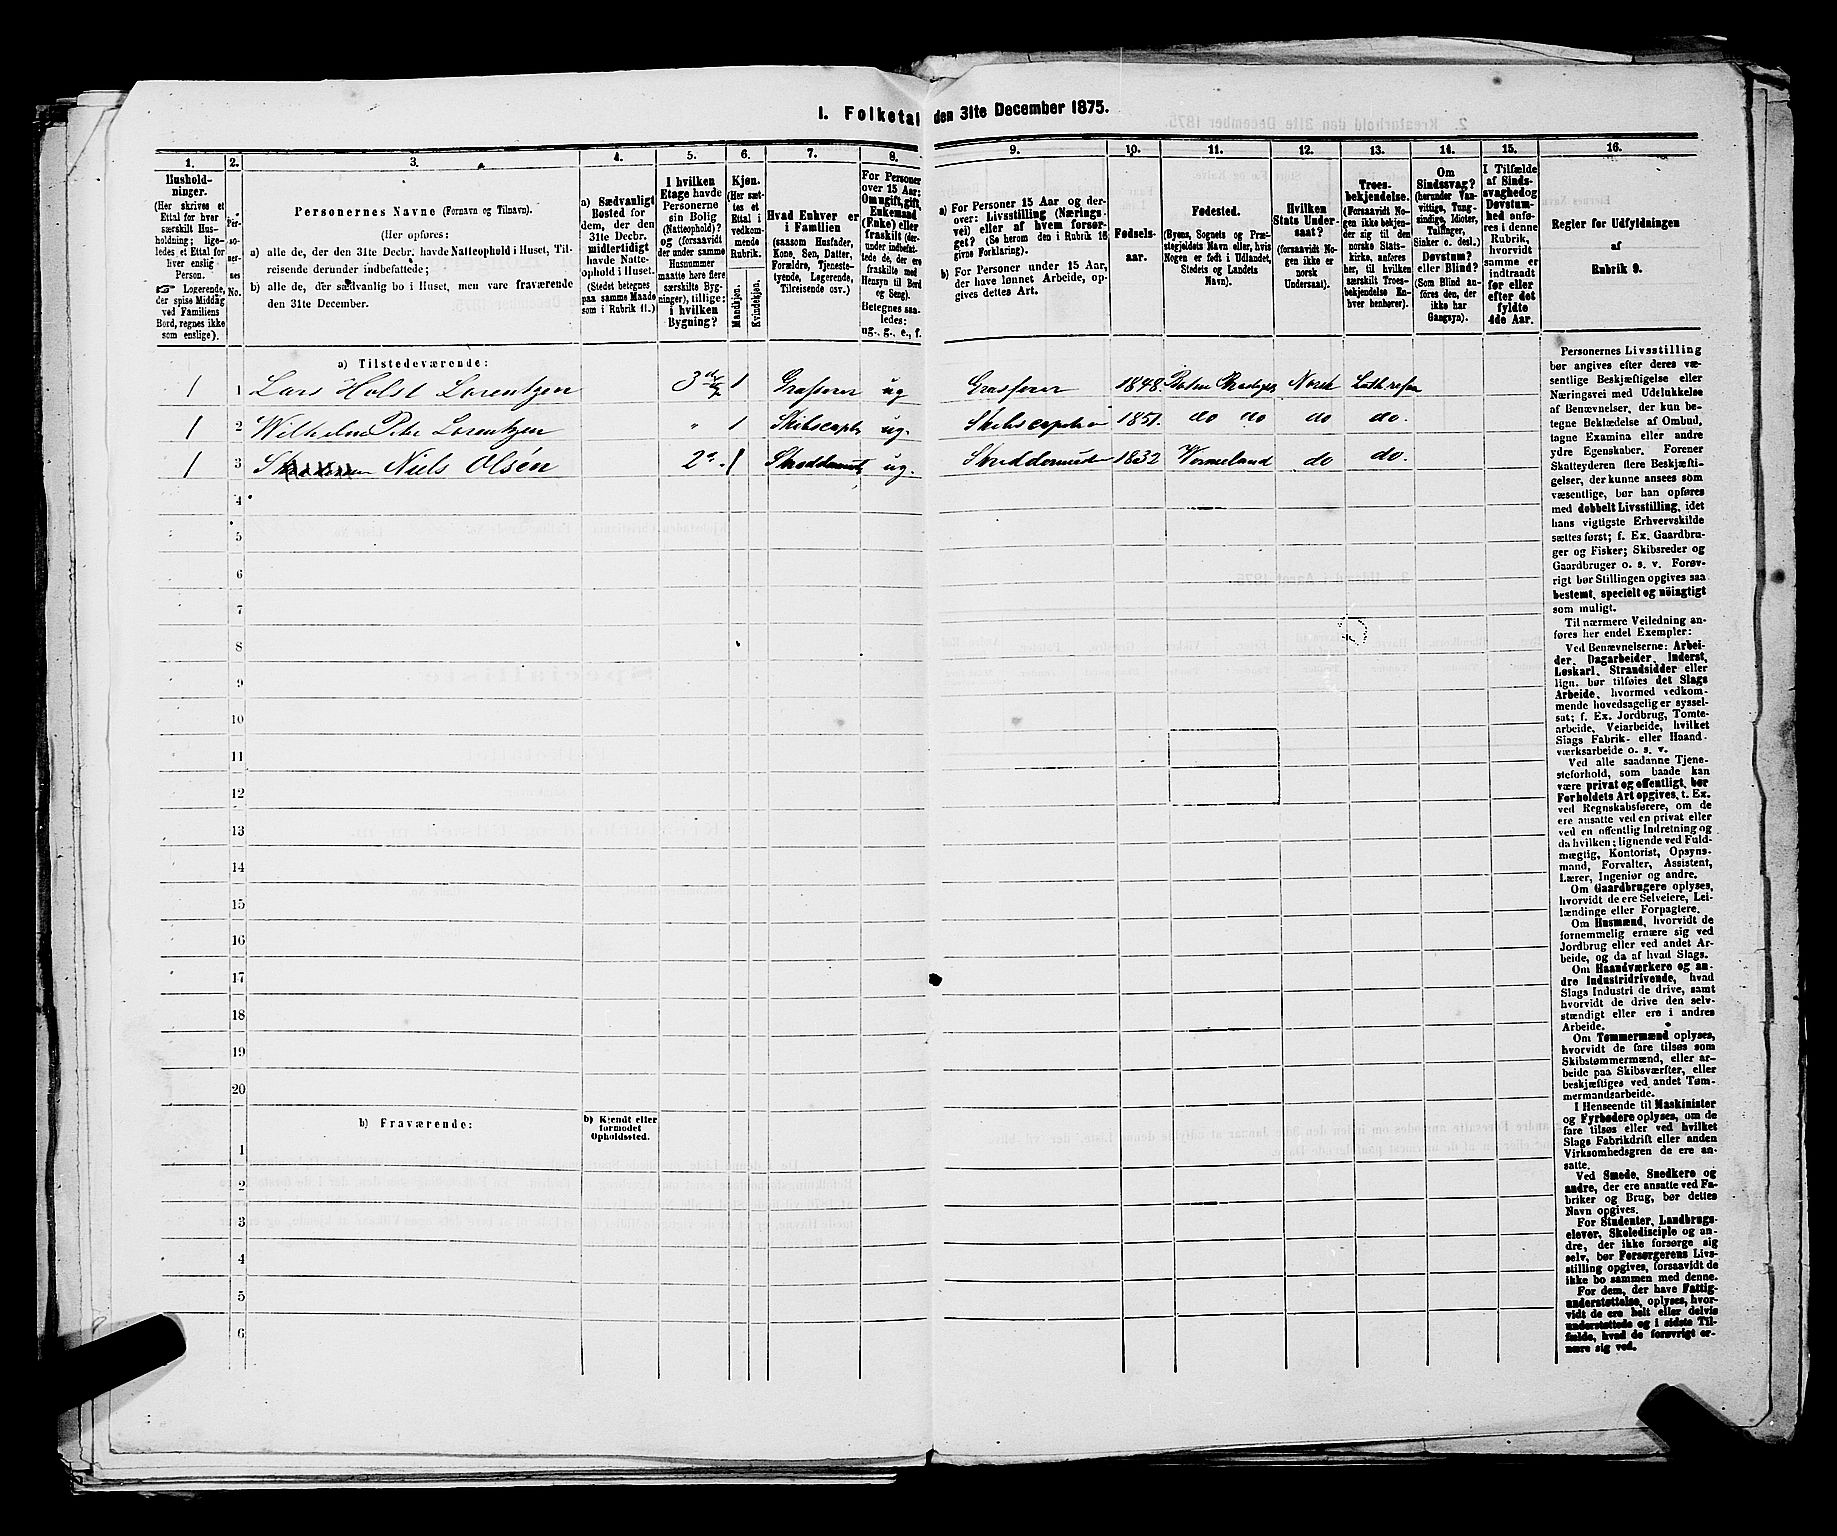 1. Folketal den 31te December 1875.
1. 2. 3. 4. 5. 6. 7. 8. 9. 10. 11. 12. 13. 14. 15. 16.
Hushold-
ninger.
(Her skrives et
Ettal for hver
særskilt Hus-
holdning; lige-
ledes et Ettal for
hver enslig
Person.
☞ Logerende,
der spise Middag
ved Familiens
Bord, regnes ikke
som enslige).
Per-
so-
ner-
nes
No.
Personernes Navne (Fornavn og Tilnavn).
(Her opføres:
a) alle de, der den 31te Decbr. havde Natteophold i Huset, Til-
reisende derunder indbefattede;
b) alle de, der sædvanlig bo i Huset, men vare fraværende
den 31te December.
a) Sædvanligt
Bosted for
dem, der den
31te Decbr.
midlertidigt
havde Natte-
ophold i Huset.
(Stedet betegnes
paa samme Maade
som i Rubrik 11.)
I hvilken
Etage havde
Personerne
sin Bolig
(Natteophold)?
og (forsaavidt
der under samme
Husnummer
maatte høre flere
særskilte Byg-
ninger), tillige:
i hvilken
Bygning?
Kjøn.
(Her sæt-
tes et
Ettal i
vedkom-
mende
Rubrik.
Mandkjøn.
Kvindekjøn.
Hvad Enhver er
i Familien
(saasom Husfader,
Kone, Søn, Datter,
Forældre, Tjeneste-
tyende, Logerende,
Tilreisende osv.)
For Personer
over 15 Aar:
Om ugift, gift,
Enkemand
(Enke) eller
fraskilt (der-
under indbefat-
tede de, der ere
fraskilte med
Hensyn til Bord
og Seng).
Betegnes saa-
ledes:
ug., g., e., f.
a) For Personer 15 Aar og der-
over: Livsstilling (Nærings-
vei) eller af hvem forsør-
get? (Se herom den i Rubrik 16
givne Forklaring).
b) For Personer under 15 Aar,
der have lønnet Arbeide, op-
gives dettes Art.
Fødsels-
aar.
Fødested.
(Byens, Sognets og Præ-
stegjeldets Navn eller, hvis
Nogen er født i Udlandet,
Stedets og Landets
Navn).
Hvilken
Stats Under-
saat?
(forsaavidt No-
gen ikke er
norsk
Undersaat).
Troes-
bekjendelse.
(Forsaavidt No-
gen ikke bekjen-
der sig til den
norske Stats-
kirke, anføres
her, til hvilken
særskilt Troes-
bekjendelse En-
hver henhører).
Om
Sindssvag?
(herunder Van-
vittige, Tung-
sindige, Idioter,
Tullinger,
Sinker o. desl.)
Døvstum?
eller Blind?
(Som Blind an-
føres den, der
ikke har
Gangsyn).
I Tilfælde
af Sinds-
svaghed og
Døvstum-
hed anfø-
res i denne
Rubrik,
hvorvidt
samme er
indtraadt
før eller
efter det
fyldte
4de Aar.
Regler for Udfyldningen
af
Rubrik 9.
a) Tilstedeværende:
1 1 Lars Holst Lorentzen 3 1 ug 1848. Norsk
1 2 Wilhelm Lorentzen " 1 Skibscapt ug. 1851. do do do do.
1 3 Niels Olsén 2 1 ug. 1832 Wermeland do do.
4
5
6
7
8
9
10
11
12
13
14
15
16
17
18
19
20
b) Fraværende:
b) Kjendt eller
formodet
Opholdssted.
1
2
3
4
5
6
Personernes Livsstilling
bør angives efter deres væ-
sentlige Beskjæftigelse eller
Næringsvei med Udelukkelse
af Benævnelser, der kun be-
tegne Beklædelse af Ombud,
tagne Examina eller andre
ydre Egenskaber. Forener
Skatteyderen flere Beskjæfti-
gelser, der kunne ansees som
væsentlige, bør han opføres
med dobbelt Livsstilling, idet
hans vigtigste Erhvervskilde
sættes først; f. Ex. Gaardbru-
ger og Fisker; Skibsreder og
Gaardbruger o. s. v. Forøv-
rigt bør Stillingen opgives saa
bestemt, specielt og nöiagtigt
som muligt.
Til nærmere Veiledning an-
føres her endel Exempler:
Ved Benævnelserne: Arbei-
der, Dagarbeider, Inderst,
Løskarl, Strandsidder eller
lign. bør tilføies det Slags
Arbeide, hvormed vedkom-
mende hovedsagelig er syssel-
sat; f. Ex. Jordbrug, Tomte-
arbeide, Veiarbeide, hvilket
Slags Fabrik- eller Haand-
værksarbeide o. s. v.
Ved alle saadanne Tjene-
steforhold, som baade kan
være privat og offentligt, bør
Forholdets Art opgives, t. Ex.
ved Regnskabsførere, om de
ere ansatte ved en privat eller
ved en offentlig Indretning og
da hvilken; lignende ved Fuld-
mægtig, Kontorist, Opsyns-
mand, Forvalter, Assistent,
Lærer, Ingeniør og andre.
Om Gaardbrugere oplyses,
hvorvidt de ere Selveiere, Lei-
lændinge eller Forpagtere.
Om Husmænd, hvorvidt de
fornemmelig ernære sig ved
Jordbrug eller ved andet Ar-
beide, og da af hvad Slags.
Om Haandværkere og an-
dre Industridrivende, hvad
Slags Industri de drive, samt
hvorvidt de drive den selv-
stændigt eller ere i andres
Arbeide.
Om Tømmermænd oplyses,
hvorvidt de fare tilsøs som
Skibstømmermænd, eller ar-
beide paa Skibsværfter, eller
beskjæftiges ved andet Tøm-
mermandsarbeide.
I Henseende til Maskinister
og Fyrbødere oplyses, om de
fare tilsøs eller ved hvilket
Slags Fabrikdrift eller anden
Virksomhedsgren de ere an-
satte.
Ved Smede, Snedkere og
andre, der ere ansatte ved Fa-
briker og Brug, bør dettes
Navn opgives.
For Studenter, Landbrugs-
elever, Skoledisciple og an-
dre, der ikke forsørge sig
selv, bør Forsørgerens Livs-
stilling opgives, forsaavidt de
ikke bo sammen med denne.
For dem, der have Fattig-
understøttelse, oplyses, hvor-
vidt de ere helt eller delvis
understøttede og i sidste Til-
fælde, hvad de forøvrigt er-
nære sig ved.